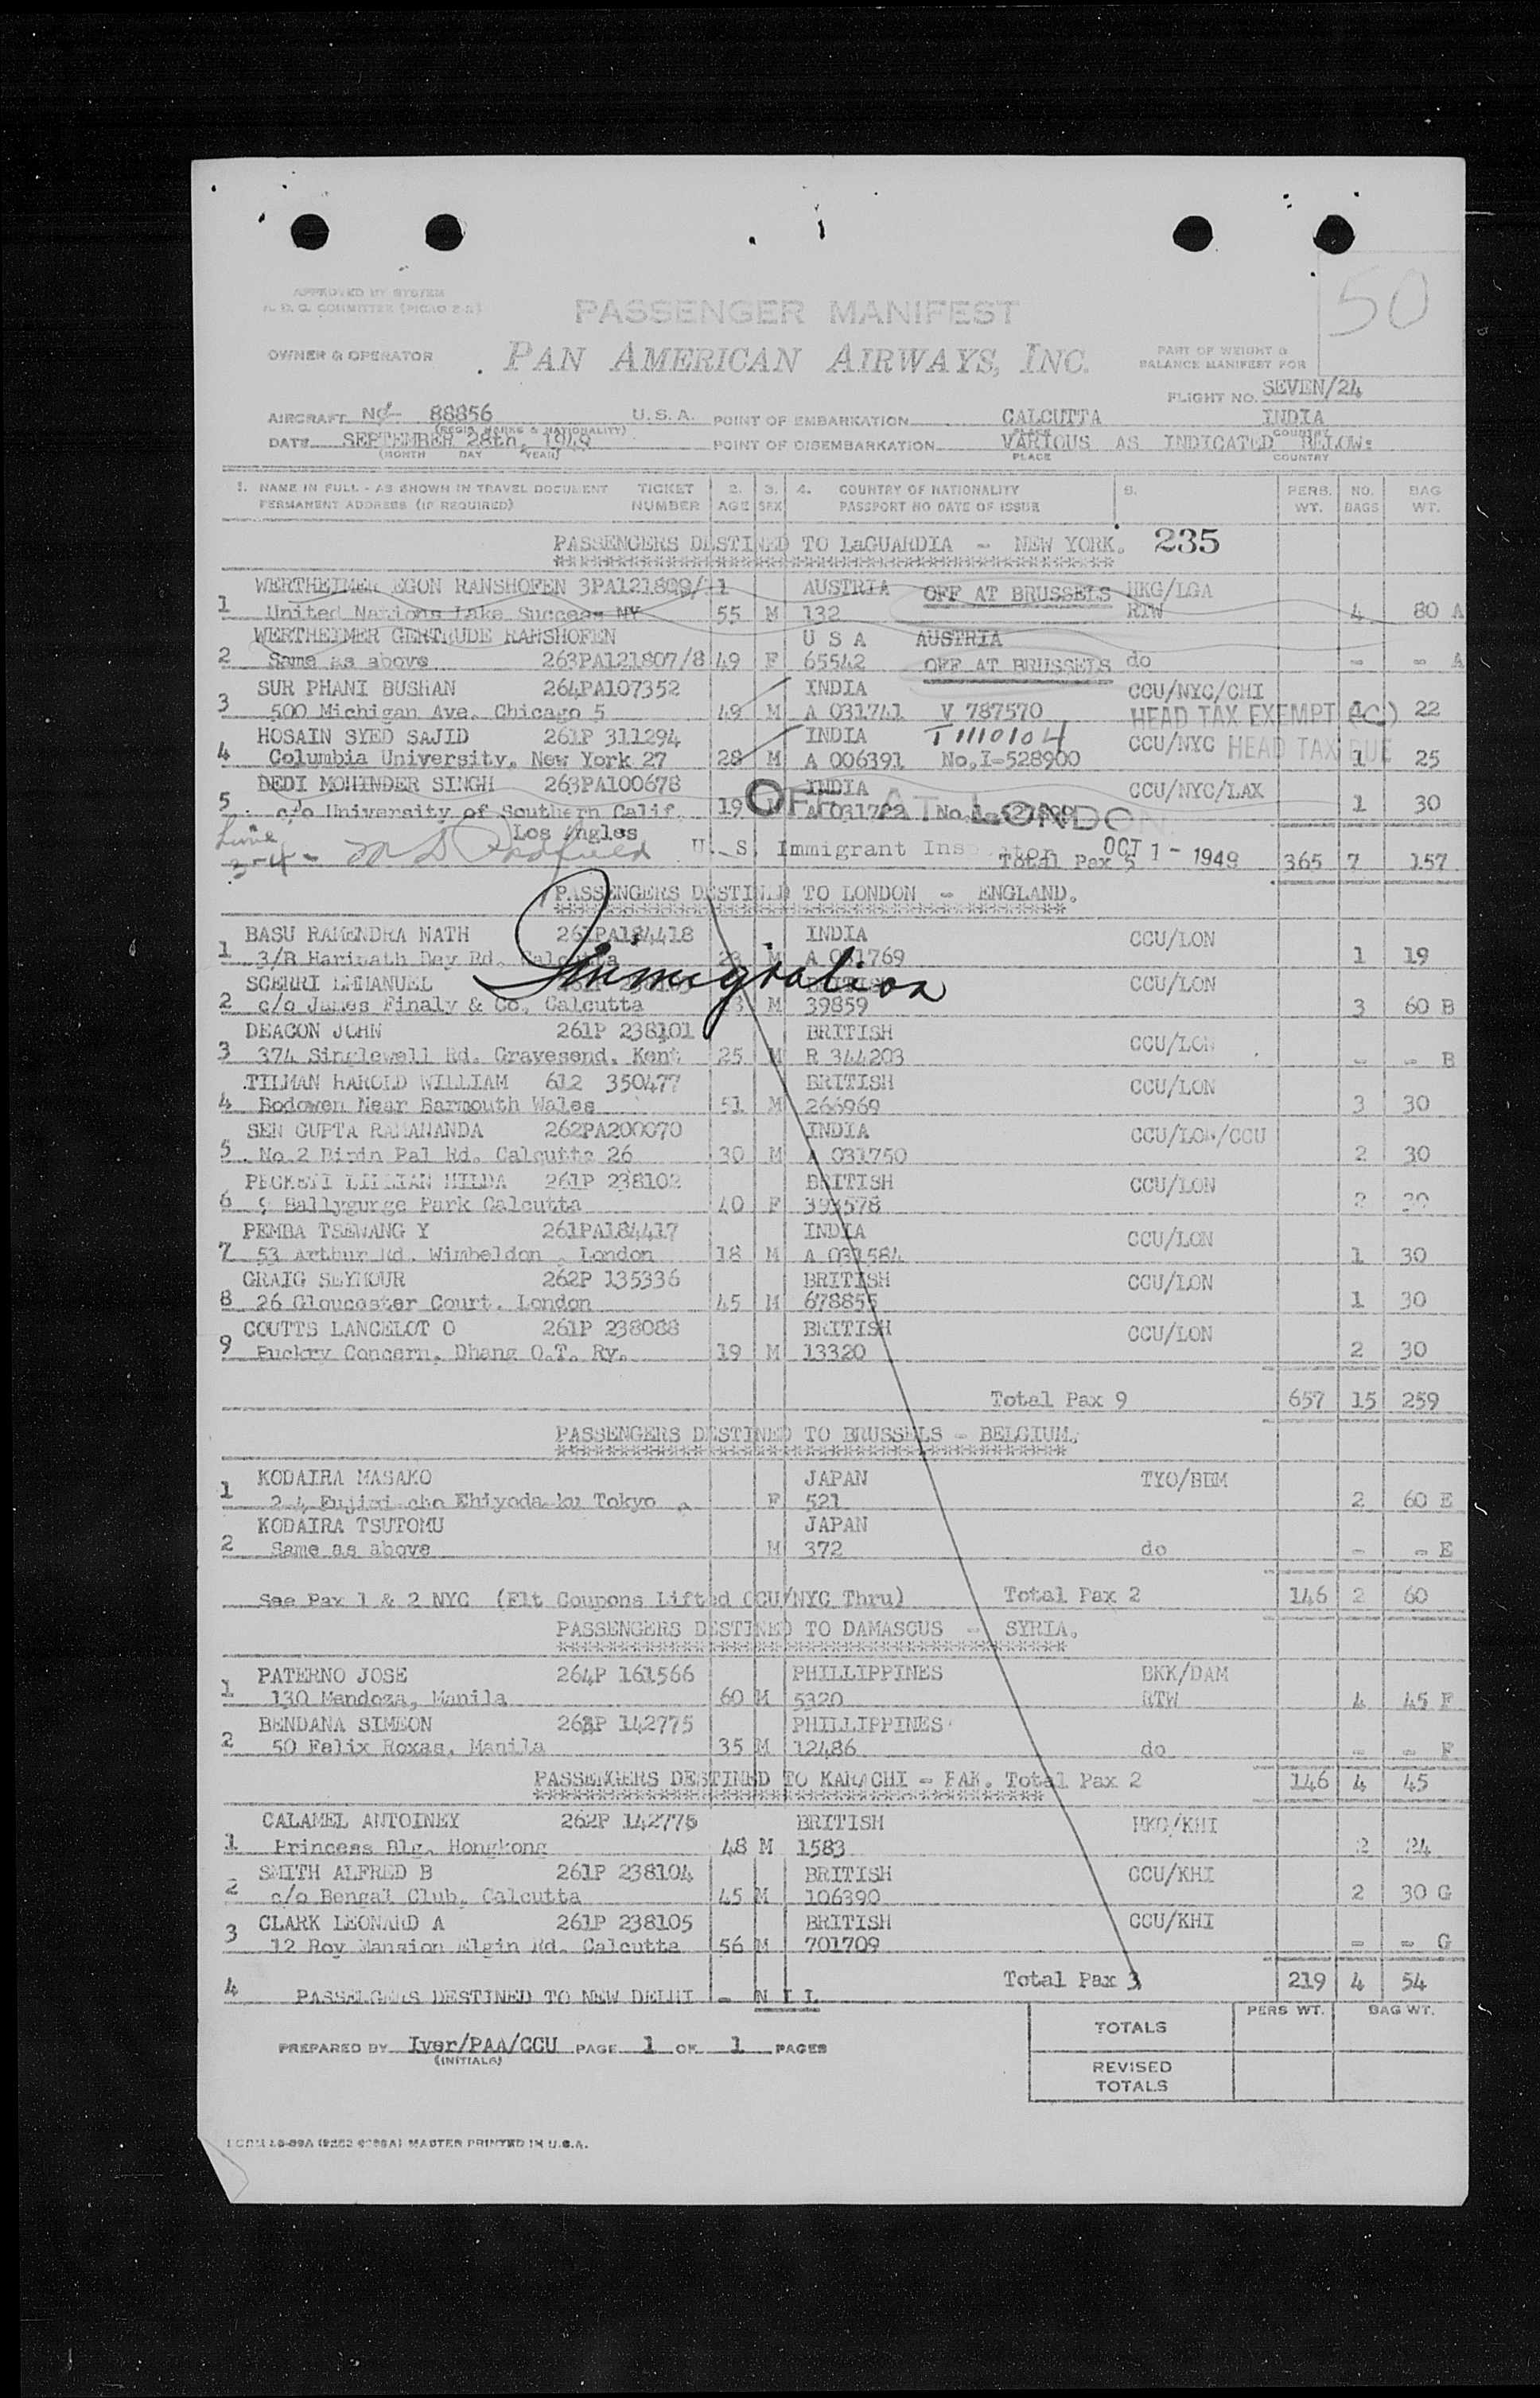 APPROVED BY SYSTEM
A. D. C. COMMITTEE (PICAO 2-2)
50
PASSENGER MANIFEST
OWNER & OPERATOR PAN AMERICAN AIRWAYS, INC. PART OF WEIGHT &
BALANCE MANIFEST FOR
FLIGHT NO. SEVEN/24
AIRCRAFT 88856 U.S.A. POINT OF EMBARKATION CALCUTTA INDIA
(REGIS. MARKS & NATIONALITY) PLACE COUNTRY
DATE SEPTEMBER 28th, 1949 POINT OF DISEMBARKATION VARIOUS AS INDICATED BELOW:
(MONTH DAY YEAR) PLACE COUNTRY
1. NAME IN FULL - AS SHOWN IN TRAVEL DOCUMENT TICKET 2. 3. 4. COUNTRY OF NATIONALITY PERS. NO. BAG
PERMANENT ADDRESS (IF REQUIRED) NUMBER AGE SEX PASSPORT NO DATE OF ISSUE WT. BAGS WT.
PASSENGERS DESTINED TO LaGUARDIA - NEW YORK. 235
WERTHEIMER EGON RANSHOFEN AUSTRIA OFF AT BRUSSELS HKG/LGA
1 United Nations Lake Success NY 55 M 132 RTW 4 80 A
WERTHEIMER GERTRUDE RANSHOFEN U S A AUSTRIA
2 Same as above 263PA121807/8 49 F 65542 OFF AT BRUSSELS do - - A
SUR PHANI BUSHAN 264PA107352 INDIA CCU/NYC/CHI
3 500 Michigan Ave. Chicago 5 49 M A 031741 V 787570 HEAD TAX EXEMPT 1 22
HOSAIN SYED SAJID 261P 311294 INDIA T 1110104 CCU/NYC HEAD TAX DUE
4 Columbia University, New York 27 28 M A 006391 No.I-528900 1 25
DEDI MOHINDER SINGH 263PA100678 INDIA CCU/NYC/LAX
5 c/o University of Southern Calif. 19 M OFF AT LONDON 1 30
Los Angles
Line 3-4 - U. S. Immigrant Inspector OCT 1 - 1949
Total Pax 5 365 7 157
PASSENGERS DESTINED TO LONDON - ENGLAND.
BASU RAMENDRA NATH 261PA184418 INDIA CCU/LON
1 3/B Harinath Dey Rd. Calcutta 23 M 1 19
Immigration
SCERRI EMMANUEL BRITISH CCU/LON
2 c/o James Finaly & Co. Calcutta M 39859 3 60 B
DEACON JOHN 261P 238101 BRITISH CCU/LON
3 374 Singlewell Rd. Gravesend, Kent 25 M R 344203 - - B
TILMAN HAROLD WILLIAM 612 350477 BRITISH CCU/LON
4 Bodowen Near Barmouth Wales 51 M 266969 3 30
SEN GUPTA RAMANANDA 262PA200070 INDIA CCU/LON/CCU
5 No.2 Bipin Pal Rd. Calcutta 26 30 M A 031750 2 30
LILLIAN HILDA 261P 238102 BRITISH CCU/LON
6 9 Ballygunge Park Calcutta 40 F 393578
PEMBA TSEWANG Y 261PA184417 INDIA CCU/LON
7 53 Arthur Rd. Wimbeldon, London 18 M A 031584 1 30
GRAIG SEYMOUR 262P 135336 BRITISH CCU/LON
8 26 Gloucester Court, London 45 M 678855 1 30
COUTTS LANCELOT O 261P 238088 BRITISH CCU/LON
9 Concern, Dhang O.T. Ry. 19 M 13320 2 30
Total Pax 9 657 15 259
PASSENGERS DESTINED TO BRUSSELS - BELGIUM.
KODAIRA MASAKO JAPAN TYO/BRM
1 2-4 Fujimi-cho Ehiyoda-ku Tokyo F 521 2 60 E
KODAIRA TSUTOMU JAPAN
2 Same as above M 372 do - - E
See Pax 1 & 2 NYC (Flt Coupons Lifted CCU/NYC Thru) Total Pax 2 146 2 60
PASSENGERS DESTINED TO DAMASCUS - SYRIA.
PATERNO JOSE 264P 161566 PHILLIPPINES BKK/DAM
1 130 Mendoza, Manila 60 M 5320 RTW 4 45 F
BENDANA SIMEON 142775 PHILLIPPINES
2 50 Felix Roxas, Manila 35 M 12486 do - - F
PASSENGERS DESTINED TO KARACHI - PAK. Total Pax 2 146 4 45
CALAMEL ANTOINEY 262P BRITISH HKG/KHI
1 Princess Blg. Hongkong 48 M 1583 2 24
SMITH ALFRED B 261P 238104 BRITISH CCU/KHI
2 c/o Bengal Club, Calcutta 45 M 106390 2 30 G
CLARK LEONARD A 261P 238105 BRITISH CCU/KHI
3 12 Roy Mansion Elgin Rd. Calcutta 56 M 701709 - - G
Total Pax 3 219 4 54
4 PASSENGERS DESTINED TO NEW DELHI - N I L
PERS WT. BAG WT.
TOTALS
PREPARED BY Iyer/PAA/CCU PAGE 1 OF 1 PAGES
(INITIALS)
REVISED
TOTALS
MASTER PRINTED IN U.S.A.